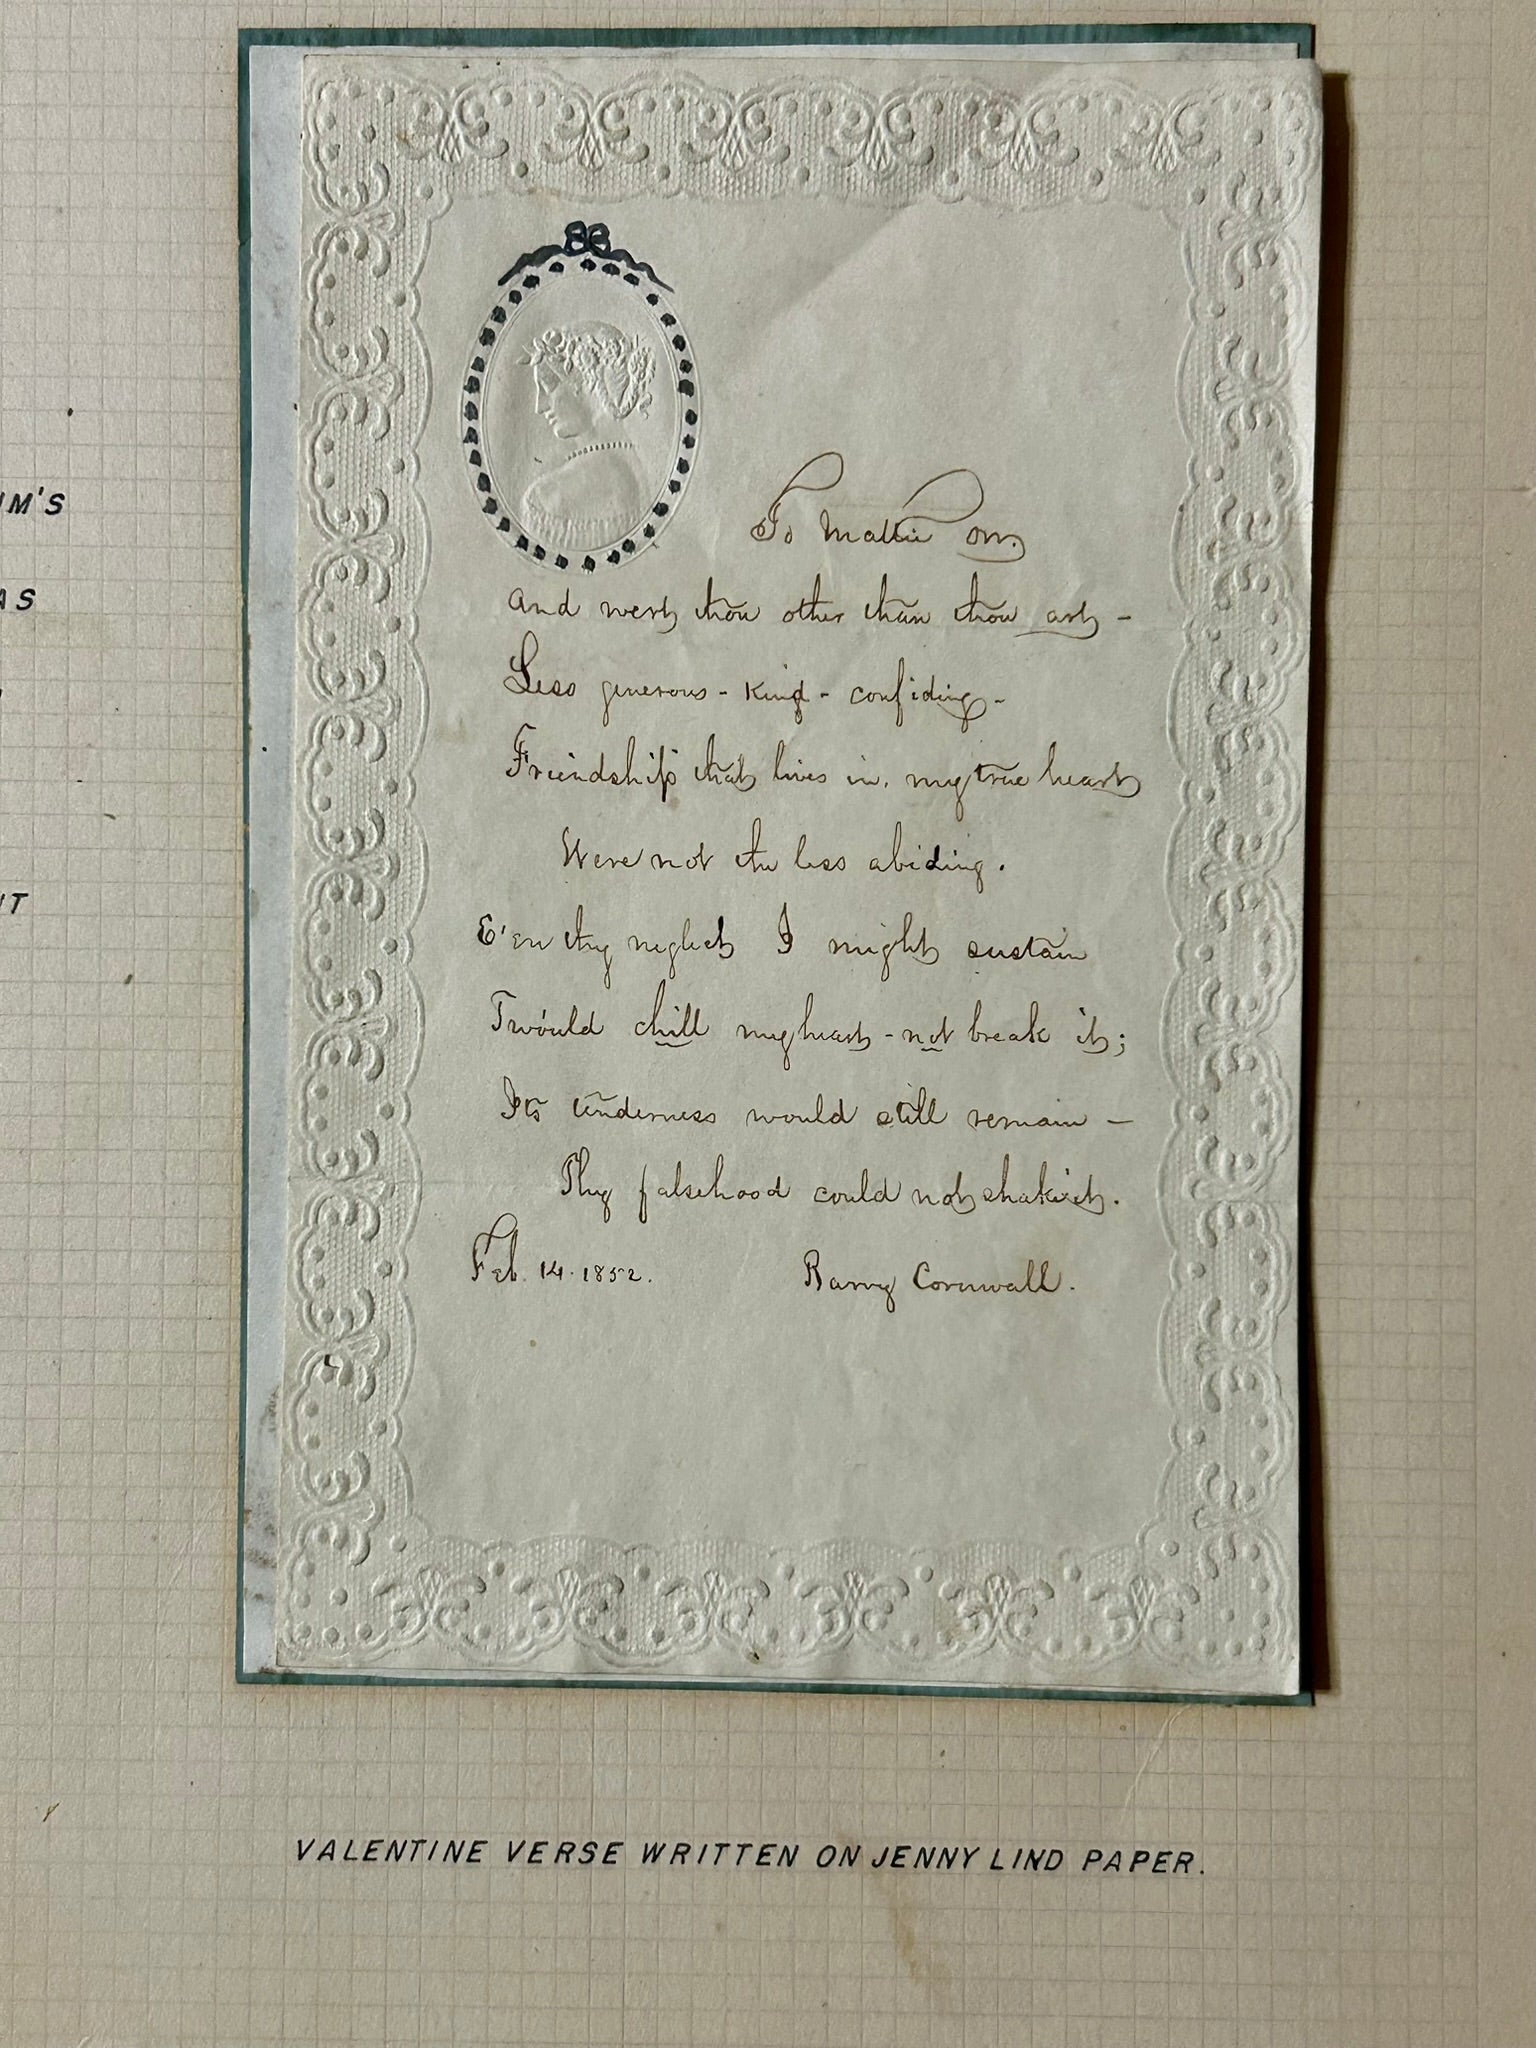 UM'S
AS
IT
To Mattie Orr.
And wert thou other than thou art -
Less generous - kind - confiding -
Friendship that lives in, my true heart
Were not the less abiding.
E'en thy neglect I might sustain
Twould chill my heart - not break it;
Its tenderness would still remain -
Thy falsehood could not shake it.
Feb. 14. 1852. Barry Cornwall.
VALENTINE VERSE WRITTEN ON JENNY LIND PAPER.